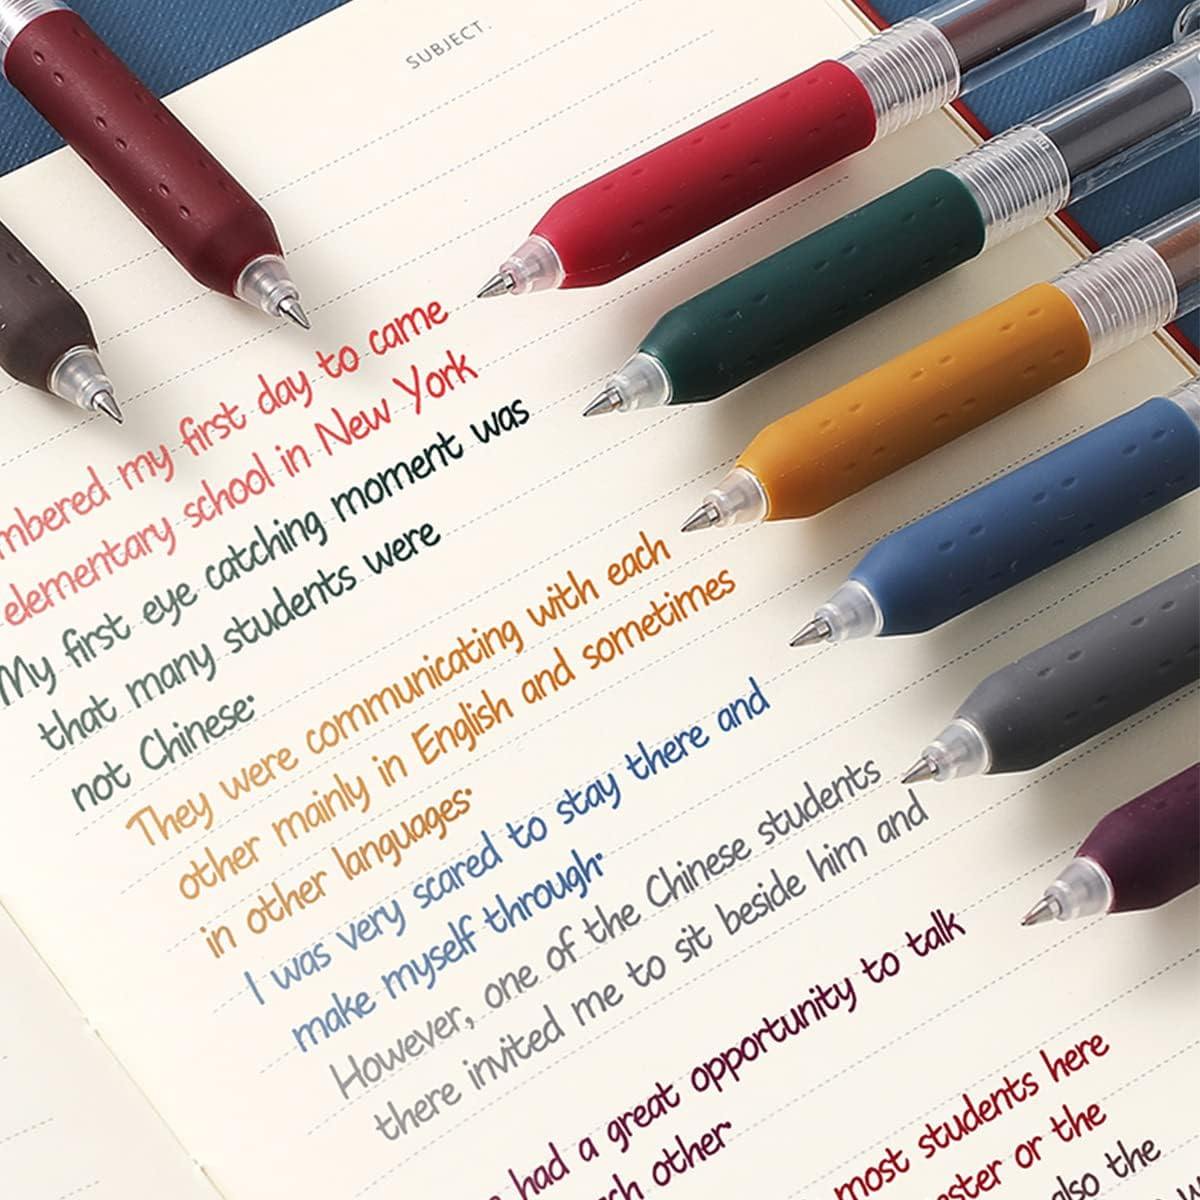 SUBJECT.
my first day to came
elementary school in New York
My first eye catching moment was
that many students were
not Chinese.
They were communicating with each
other mainly in English and sometimes
in other languages.
I was very scared to stay there and
make myself through.
However, one of the Chinese students
there invited me to sit beside him and
had a great opportunity to talk
other.
most students here
or the
also the